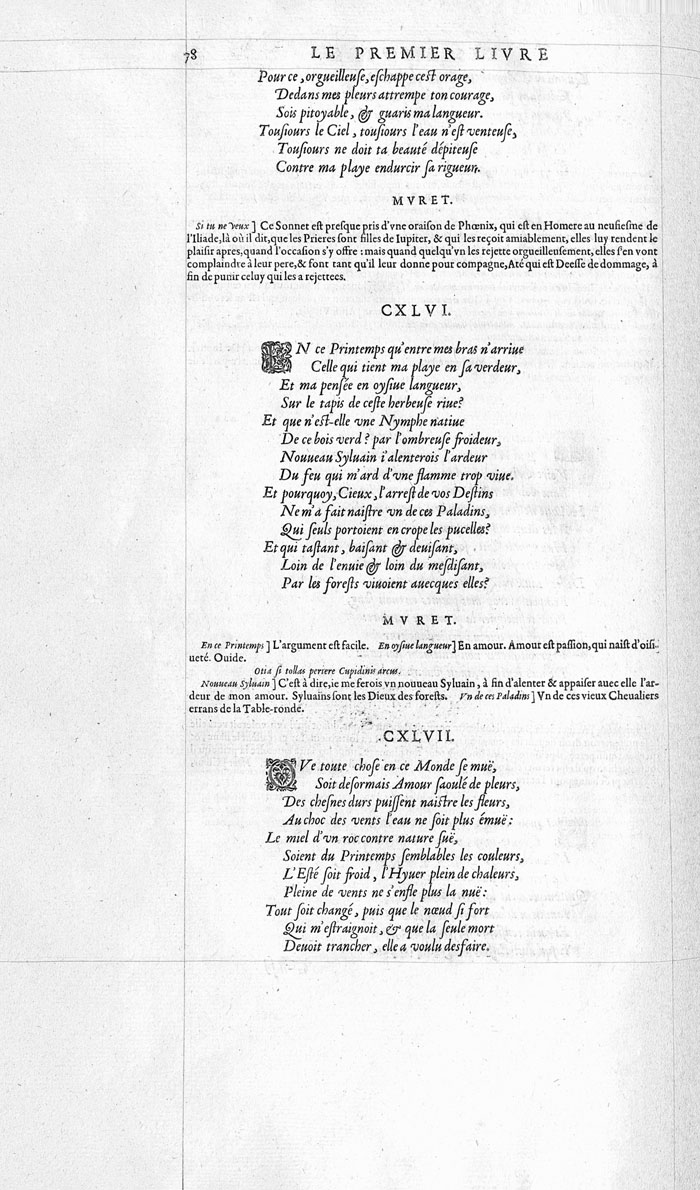 78 LE PREMIER LIVRE
Pour ce, orgueilleuſe, eſchappe ceſt orage,
Dedans mes pleurs attrempe ton courage,
Sois pitoyable, & guaris ma langueur.
Touſiours le Ciel, touſiours l'eau n'eſt venteuſe,
Touſiours ne doit ta beauté dépiteuſe
Contre ma playe endurcir ſa rigueur.
MVRET.
Si tu ne veux] Ce Sonnet eſt preſque pris d'vne oraiſon de Phœnix, qui eſt en Homere au neufieſme de
l'Iliade, là où il dit, que les Prieres ſont filles de Iupiter, & qui les reçoit amiablement, elles luy rendent le
plaiſir apres, quand l'occaſion s'y offre : mais quand quelqu'vn les rejette orgueilleuſement, elles ſ'en vont
complaindre à leur pere, & font tant qu'il leur donne pour compagne, Até qui eſt Deeſſe de dommage, à
fin de punir celuy qui les a rejettees.
CXLVI.
EN ce Printemps qu'entre mes bras n'arriue
Celle qui tient ma playe en ſa verdeur,
Et ma penſée en oyſiue langueur,
Sur le tapis de ceſte herbeuſe riue?
Et que n'eſt-elle vne Nymphe natiue
De ce bois verd? par l'ombreuſe froideur,
Nouueau Syluain i'alenterois l'ardeur
Du feu qui m'ard d'vne flamme trop viue.
Et pourquoy, Cieux, l'arreſt de vos Deſtins
Ne m'a fait naiſtre vn de ces Paladins,
Qui ſeuls portoient en crope les pucelles?
Et qui taſtant, baiſant & deuiſant,
Loin de l'enuie & loin du meſdiſant,
Par les foreſts viuoient auecques elles?
MVRET.
En ce Printemps] L'argument eſt facile. En oyſiue langueur] En amour. Amour eſt paſſion, qui naiſt d'oiſi-
ueté. Ouide.
Otia ſi tollas periere Cupidinis arcus.
Nouueau Syluain] C'eſt à dire, ie me ferois vn nouueau Syluain, à fin d'alenter & appaiſer auec elle l'ar-
deur de mon amour. Syluains ſont les Dieux des foreſts. Vn de ces Paladins] Vn de ces vieux Cheualiers
errans de la Table-ronde.
CXLVII.
QVe toute choſe en ce Monde ſe muë,
Soit deſormais Amour ſaoulé de pleurs,
Des cheſnes durs puiſſent naiſtre les fleurs,
Au choc des vents l'eau ne ſoit plus émuë:
Le miel d'vn roc contre nature ſuë,
Soient du Printemps ſemblables les couleurs,
L'Eſté ſoit froid, l'Hyuer plein de chaleurs,
Pleine de vents ne s'enfle plus la nuë:
Tout ſoit changé, puis que le nœud ſi fort
Qui m'eſtraignoit, & que la ſeule mort
Deuoit trancher, elle a voulu desfaire.